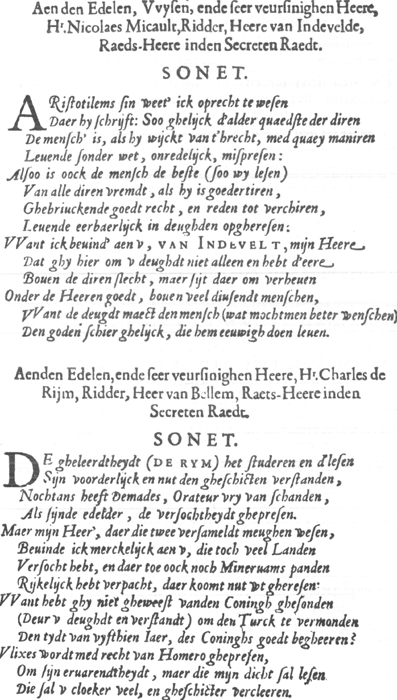 Aen den Edelen, Vvysen, ende seer veursinighen Heere,
Hr. Nicolaes Micault, Ridder, Heere van Indevelde,
Raeds-Heere inden Secreten Raedt.
SONET.
ARistotilems sin weet' ick oprecht te wesen
Daer hy schrijft: Soo ghelijck d'alder quaedste der diren
De mensch' is, als hy wijckt van t'hrecht, med quaey maniren
Leuende sonder wet, onredelijck, mispresen:
Alsoo is oock de mensch de beste (soo wy lesen)
Van alle diren vremdt, als hy is goedertiren,
Ghebriuckende goedt recht, en reden tot verchiren,
Leuende eerbaerlijck in deughden opgheresen:
VVant ick beuind' aen v, VAN INDEVELT, mijn Heere
Dat ghy hier om v deughdt niet alleen en hebt d'eere
Bouen de diren slecht, maer sijt daer om verheuen
Onder de Heeren goedt, bouen veel diusendt menschen,
VVant de deugdt maeckt den mensch (wat mochtmen beter wenschen)
Den goden schier ghelijck, die hem eeuwigh doen leuen.
Aenden Edelen, ende seer veursinighen Heere, Hr. Charles de
Rijm, Ridder, Heer van Bellem, Raets-Heere inden
Secreten Raedt.
SONET.
DE gheleerdtheydt (DE RYM) het studeren en d'lesen
Sijn voorderlijck en nut den gheschickten verstanden,
Nochtans heeft Demades, Orateur vry van schanden,
Als sijnde edelder, de versochtheydt ghepresen.
Maer mijn Heer', daer die twee versameldt meughen wesen,
Beuinde ick merckelijck aen v, die toch veel Landen
Versocht hebt, en daer toe oock noch Mineruams panden
Rijkelijck hebt verpacht, daer koomt nut wt gheresen:
VVant hebt ghy niet gheweest vanden Coningh ghesonden
(Deur v deughdt en verstandt) om den Turck te vermonden
Den tydt van vyfthien Iaer, des Coninghs goedt begheeren?
Vlixes wordt med recht van Homero ghepresen,
Om sijn eruarendtheydt, maer die mijn dicht sal lesen
Die sal v cloeker veel, en gheschickter vercleeren.